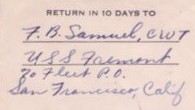 RETURN IN 10 DAYS TO
F. B. Samuel, CWT
U S S Fremont
℅ Fleet P.O.
San Francisco, Calif